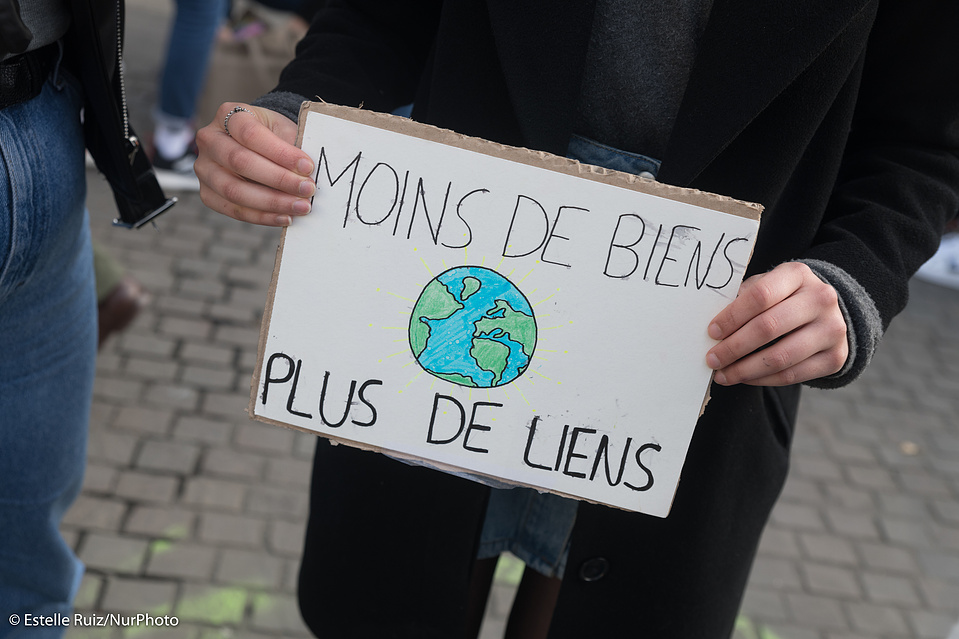 MOINS DE BIENS
PLUS DE LIENS
© Estelle Ruiz/NurPhoto